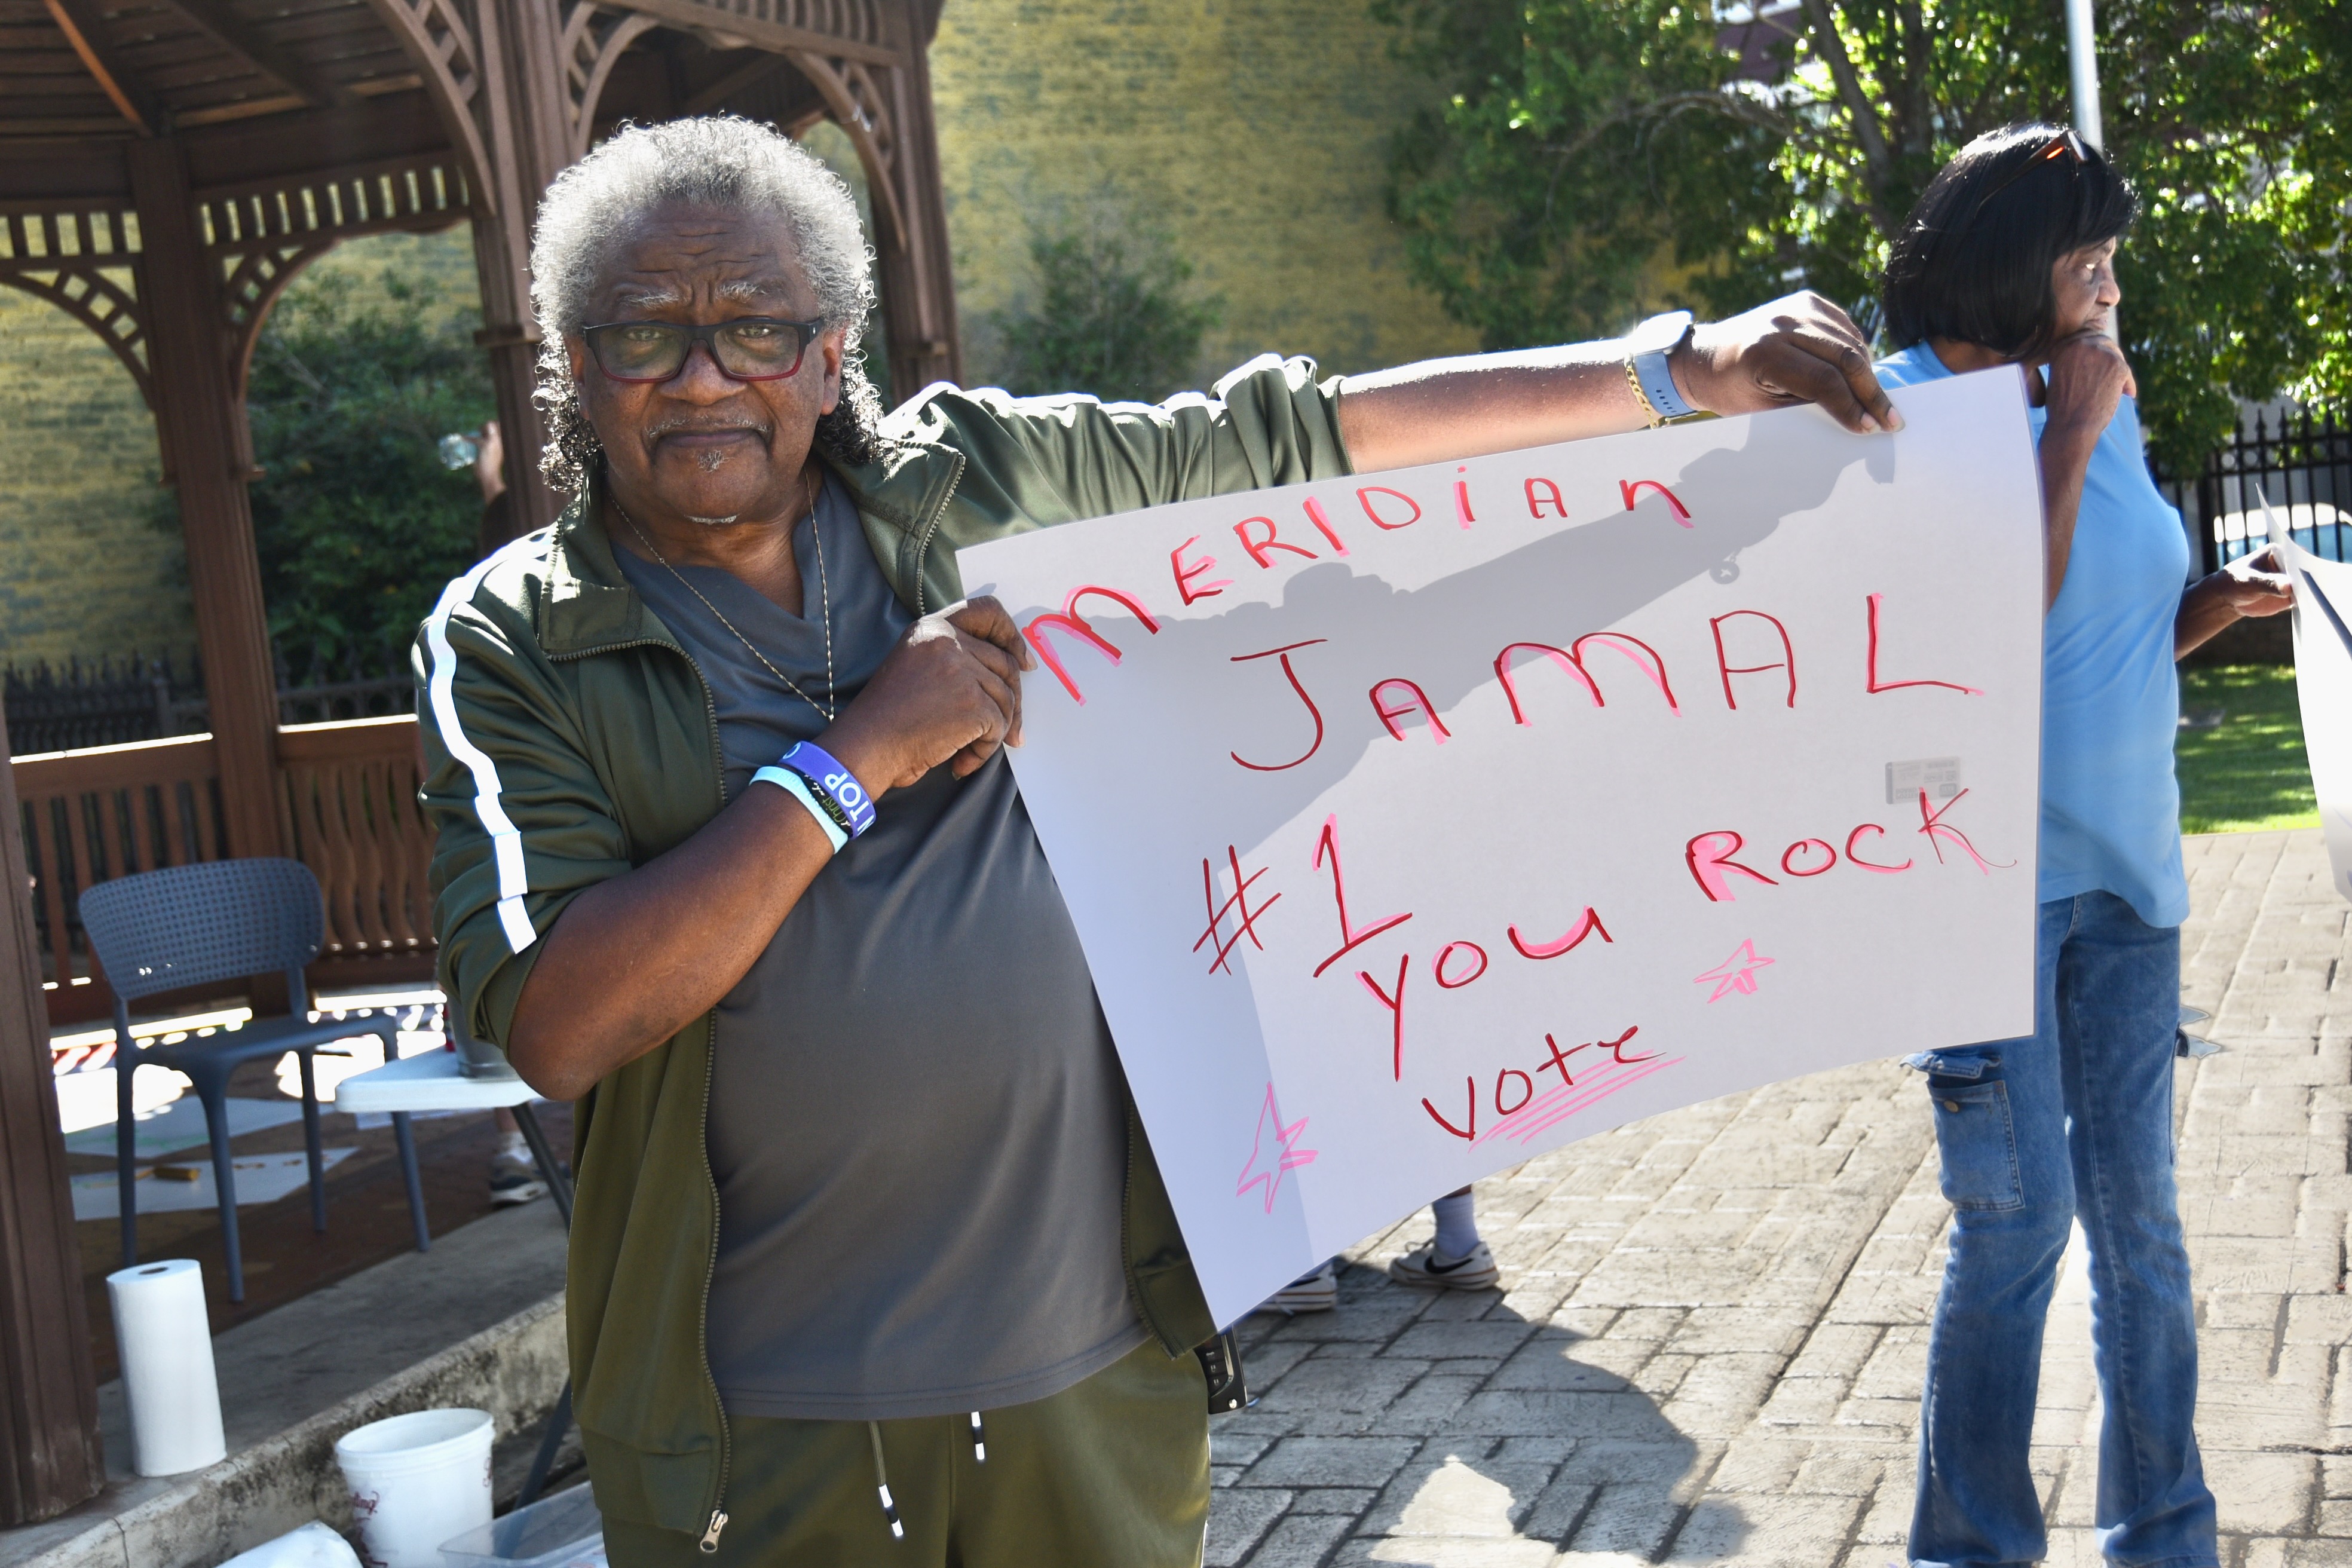 MERIDiAn
JAMAL
#1
you ROCK
vote
TOP